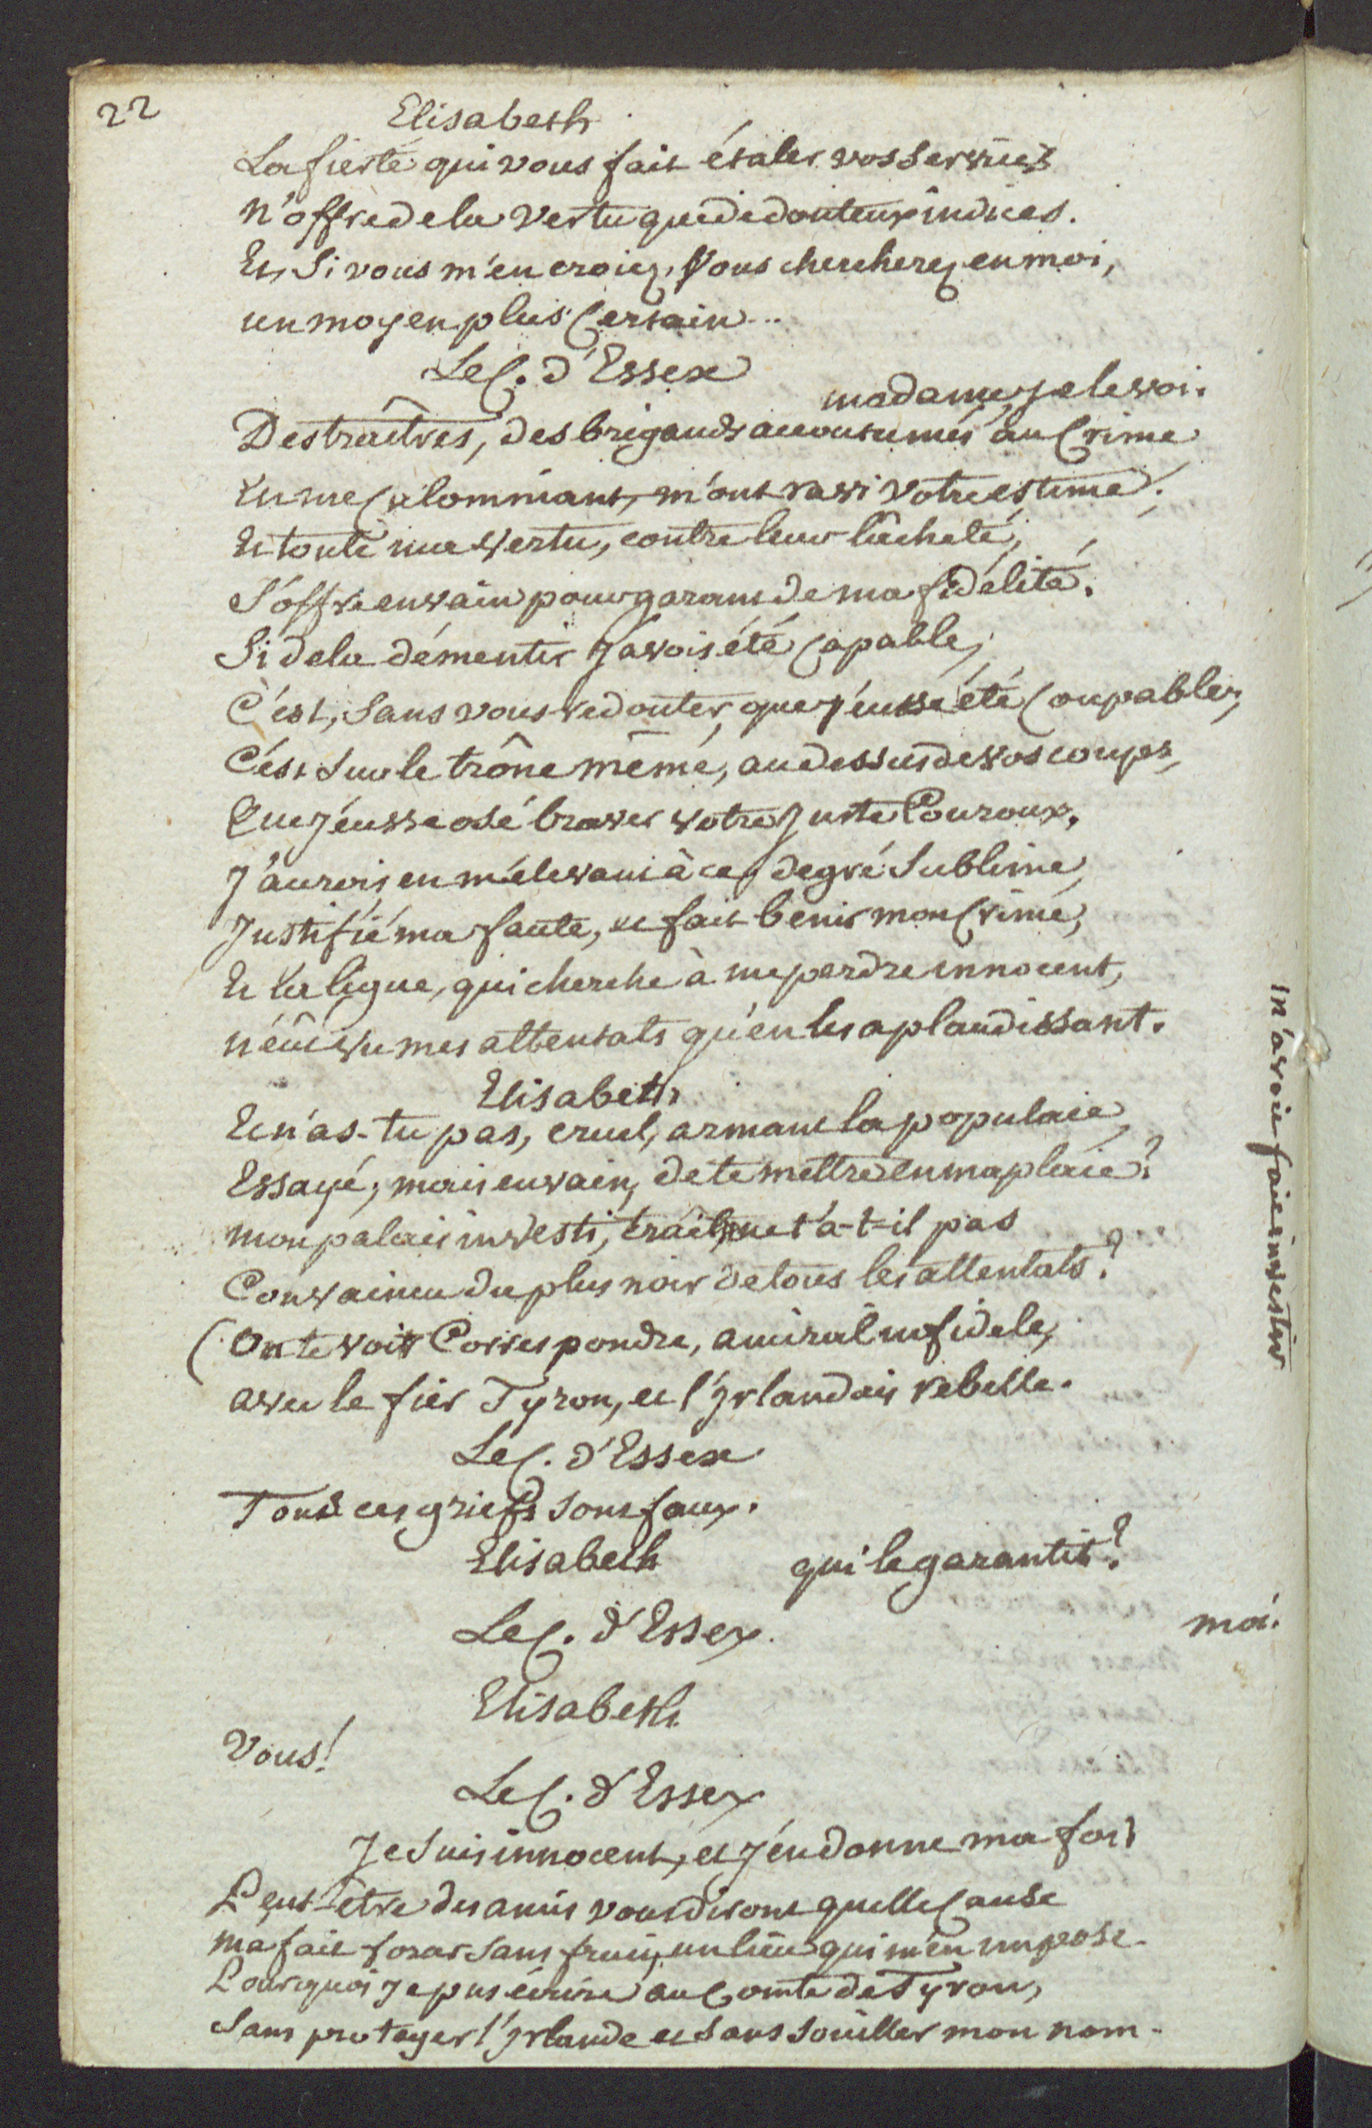 22
Elisabeth
La fierté qui vous fait étaler vos services
n'offre de la vertu que de douteux indices.
Et, Si vous m'en croiez, Vous chercherez en moi,
un moyen plus Certain...
Le C. d'Essex
madame, je le voi.
Des traîtres, des brigands accoutumés au Crime
En me Calomniant, m'ont ravi votre estime;
Et toute ma vertu, contre leur lâcheté,
S'offre envain pour garant de ma fidélité.
Si de la démentir J'avois été Capable,
C'est, Sans vous redouter, que j'eusse été Coupable,
C'est Sur le trône même, au dessus de vos coups,
Que j'eusse osé braver votre Juste Couroux.
J'aurois, en m'élevant à ce degré Sublime,
Justifié ma faute, et fait benir mon Crime,
Et la ligue, qui cherche à me perdre innocent,
n'eût vu mes attentats qu'en les aplaudissant.
Elisabeth
Et n'as-tu pas, cruel, armant la populace,
Essayé, mais envain, de te mettre en ma place?
mon palais investi, traitre, ne t'a-t-il pas
Convaincu du plus noir de tous les attentats?
(On te voit Correspondre, amiral infidele,
avec le fier Tyron, et l'Irlandais rebelle.
Le C. d'Essex
Tous ces griefs sont faux.
Elisabeth
qui le garantit?
Le C. d'Essex
moi.
Elisabeth
Vous!
Le C. d'Essex
Je Suis innocent, et j'en donne ma foi;
Peut-être des amis vous diront quelle Cause
m'a fait forcer sans fruit, un lieu qui m'en impose.
Pourquoi je pus écrire au Comte de Tyron,
Sans proteger l'Irlande et sans souiller mon nom.
m'avoir fait investir